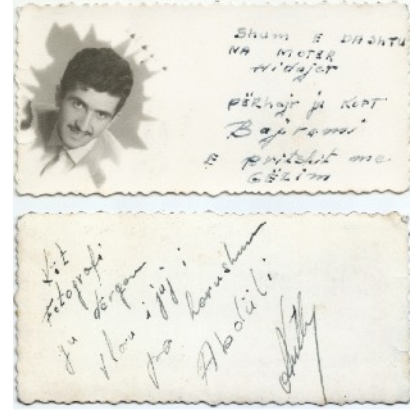 Shum E DASHTU
NA MOTER
Hidajer
PËRHajr ju KOFT
Bajrami
E pritshit me
GËZIM
Kit
Fotografi
ju dërgon
vlau i juj i
pa harushum
Abdüli